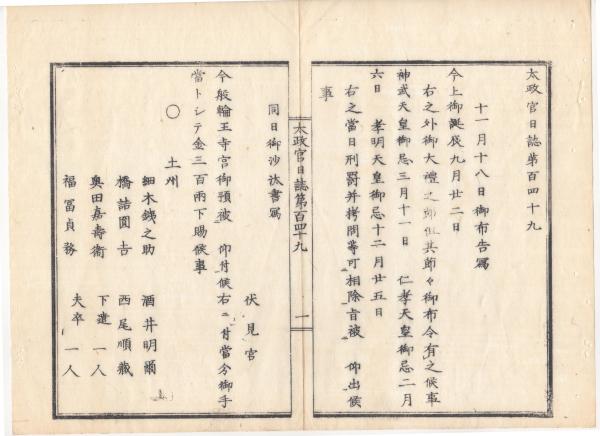 太政官日誌第百四十九
十一月十八日御布告寫
今上御誕辰九月廿二日
右之外御大禮之節但其節々御布令有之候事
神武天皇御忌三月十一日　仁孝天皇御忌二月
六日　孝明天皇御忌十二月廿五日
右之當日刑罸并拷問等可相除旨被　仰出候
事
太政官日誌第百四十九
一
同日御沙汰書寫
伏見宮
今般輪王寺宮御預被　仰付候右ニ付當分御手
當トシテ金三百兩下賜候事
○　土州
細木銕之助　酒井明爾
橋詰圓吉　西尾順藏
奥田嘉壽衛　下遣　一人
福冨貞務　夫卒　一人